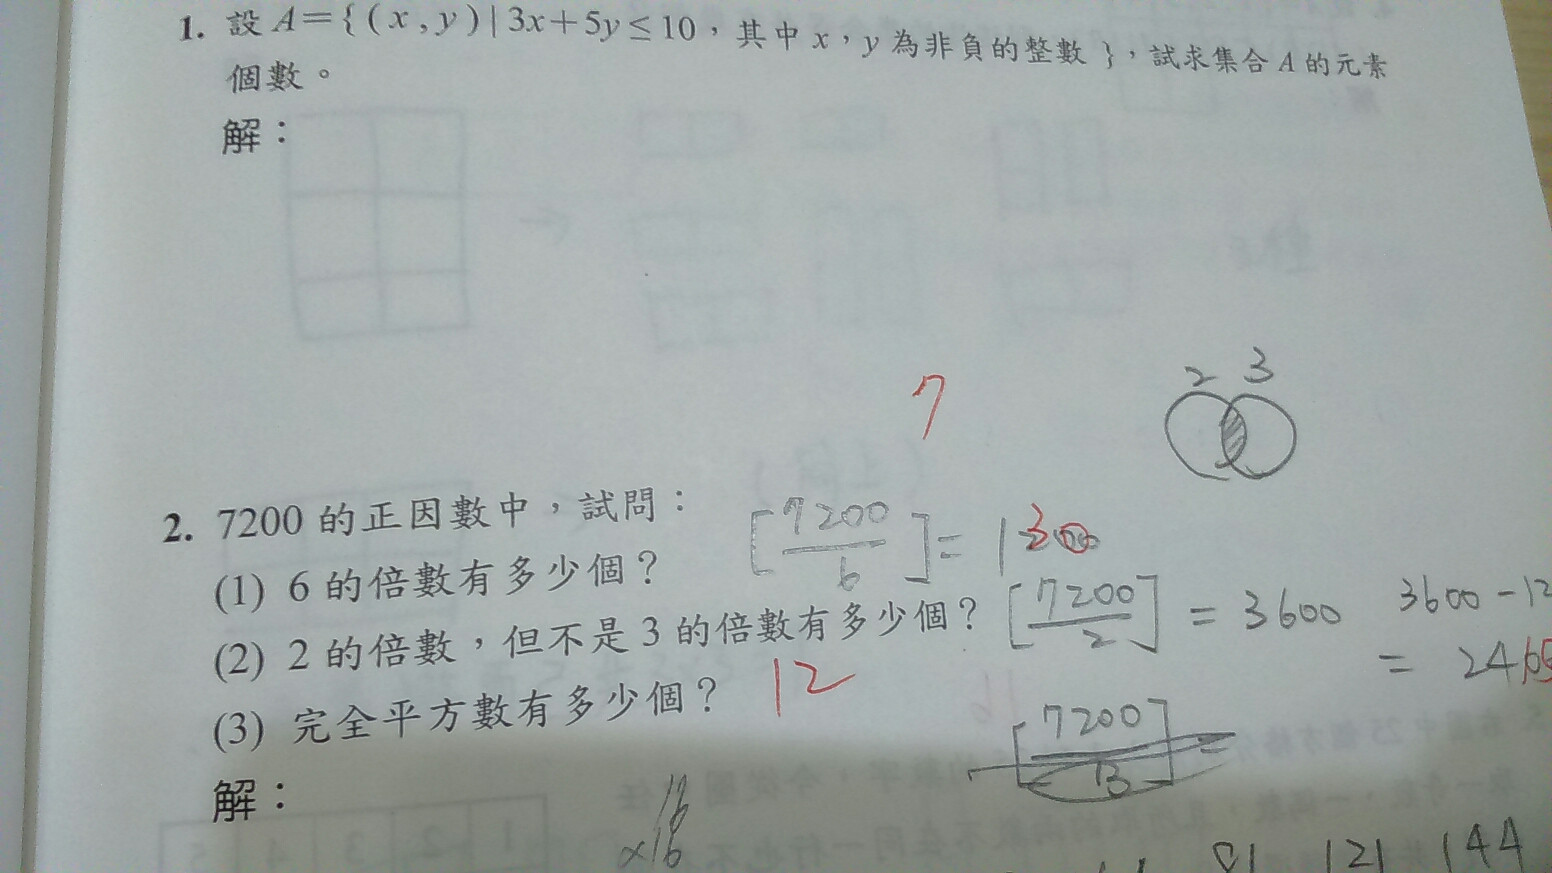 1. 設 A={(x,y)|3x+5y≤10,其中 x,y 為非負的整數},試求集合 A 的元素
個數。
解:
2 3
7
2. 7200 的正因數中,試問:
[7200/6]=1
(1) 6 的倍數有多少個?
(2) 2 的倍數,但不是 3 的倍數有多少個?
[7200/2] = 3600
3600-12
= 24
(3) 完全平方數有多少個?
12
[7200/13] =
解:
16
×16
81 121 144